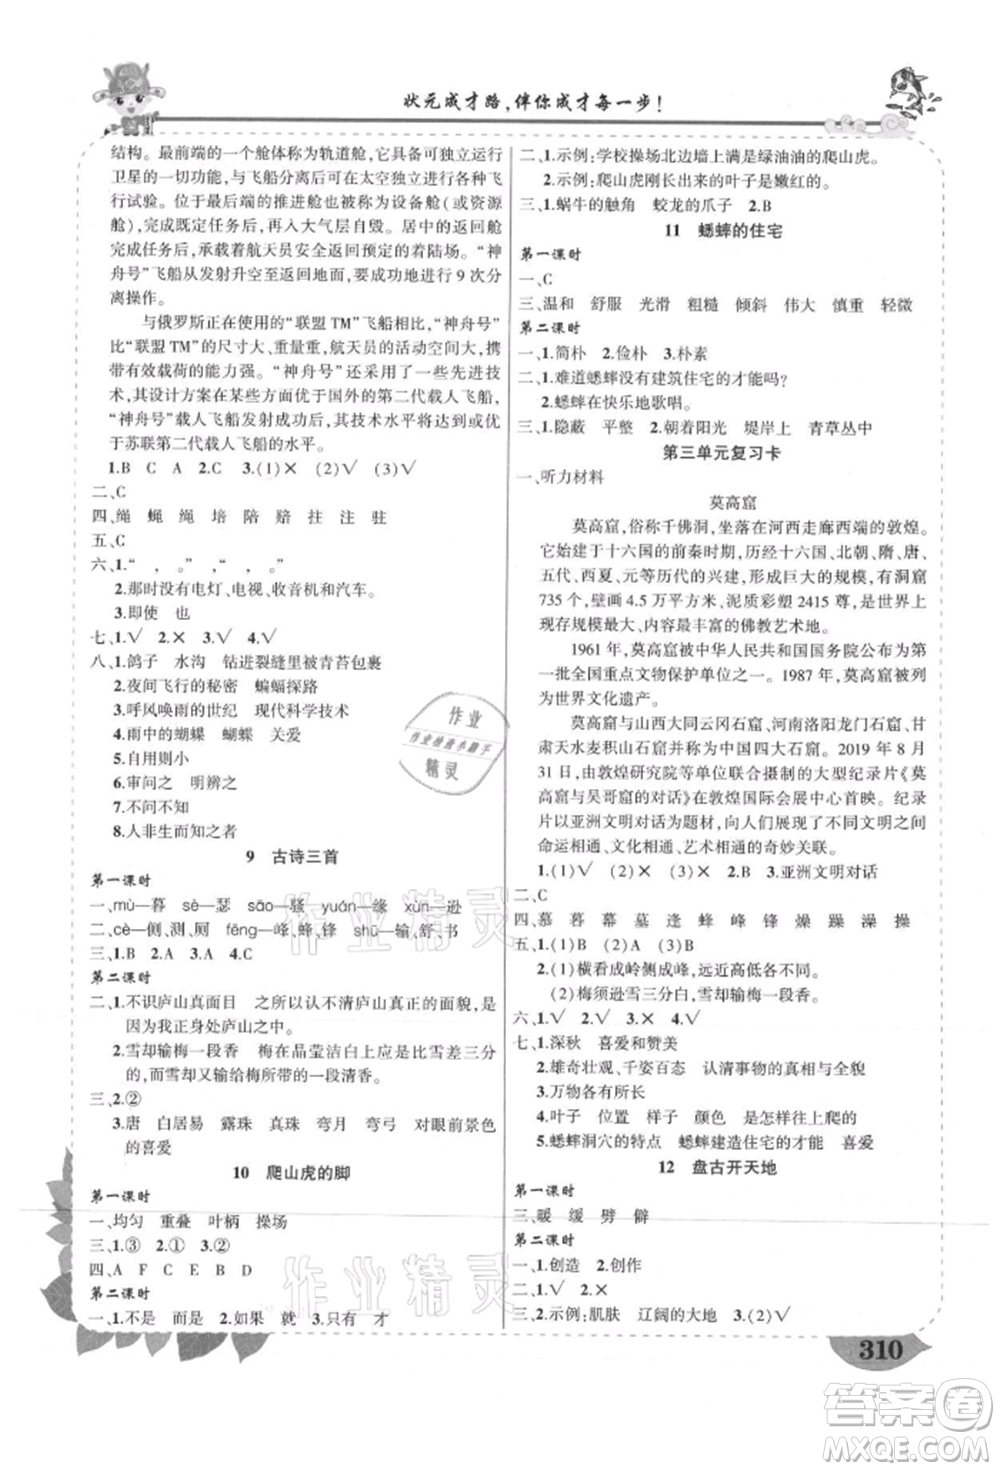 状元成才路,伴你成才每一步!
结构。最前端的一个舱体称为轨道舱,它具备可独立运行
卫星的一切功能,与飞船分离后可在太空独立进行科学飞
行试验。位于最后端的推进舱也被称为设备舱(或资源
舱),完成既定任务后,再入大气层自毁。居中的返回舱
完成任务后,搭载着航天员安全返回预定的着陆场。“神
舟号”飞船从发射升空至返回地面,要成功地进行 9 次分
离操作。
与俄罗斯正在使用的“联盟 TM”飞船相比,“神舟号”
比“联盟 TM”的尺寸大、载重量大,航天员的活动空间大,携
带有效载荷的能力强。“神舟号”还采用了一些先进技
术,其设计方案在某些方面优于国外的第二代载人飞船,
“神舟号”载人飞船发射成功后,其技术水平将达到或优
于苏联第二代载人飞船的水平。
1.B C A 2.C 3.(1)× (2)√ (3)√
二、C
四、绳 蝇 绳 培 陪 赔 拄 注 驻
五、C
六、1.“ , 。” “ , 。”
2.那时没有电灯、电视、收音机和汽车。
3.即使 也
七、1.√ 2.× 3.√ 4.√
八、1.鸽子 水沟 钻进裂缝里被青苔包裹
2.夜间飞行的秘密 蝙蝠探路
3.呼风唤雨的世纪 现代科学技术
4.雨中的蝴蝶 蝴蝶 关爱
5.自用则小
6.审问之 明辨之
7.不问不知
8.人非生而知之者
9 古诗三首
第一课时
一、mù—暮 sè—瑟 sāo—骚 yuán—缘 xùn—逊
二、cè—侧、测、厕 fēng—峰、蜂、锋 shū—输、舒、书
三、1.B 2.A 3.A 4.C
第二课时
二、1.不识庐山真面目 之所以认不清庐山真正的面貌,是
因为我正身处庐山之中。
2.雪却输梅一段香 梅在晶莹洁白上应是与雪差三分
的,而雪却又输给梅所带的一段清香。
三、2.②
3.唐 白居易 露珠 真珠 弯月 弯弓 对眼前景色
的喜爱
10 爬山虎的脚
第一课时
一、均匀 重叠 叶柄 操场
三、1.③ 2.① 3.②
四、A F C E B D
第二课时
一、1.不是 而是 2.如果 就 3.只有 才
二、1.示例:学校操场北边墙上满是绿油油的爬山虎。
2.示例:爬山虎刚长出来的叶子是嫩红的。
三、1.蜗牛的触角 蛟龙的爪子 2.B
11 蟋蟀的住宅
第一课时
一、C
三、温和 舒服 光滑 粗糙 倾斜 伟大 慎重 轻微
第二课时
一、1.简朴 2.俭朴 3.朴素
二、1.难道蟋蟀没有建筑住宅的才能吗?
2.蟋蟀在快乐地歌唱。
三、1.隐蔽 平整 2.朝着阳光 堤岸上 青草丛中
第三单元复习卡
一、听力材料
莫高窟
莫高窟,俗称千佛洞,坐落在河西走廊西端的敦煌。
它始建于十六国的前秦时期,历经十六国、北朝、隋、唐、
五代、西夏、元等历代的兴建,形成巨大的规模,有洞窟
735 个,壁画 4.5 万平方米、泥质彩塑 2415 尊,是世界上
现存规模最大、内容最丰富的佛教艺术地。
1961 年,莫高窟被中华人民共和国国务院公布为第
一批全国重点文物保护单位之一。1987 年,莫高窟被列
为世界文化遗产。
莫高窟与山西大同云冈石窟、河南洛阳龙门石窟、甘
肃天水麦积山石窟并称为中国四大石窟。2019 年 8 月
31 日,由敦煌研究院等单位联合摄制的大型纪录片《莫
高窟与吴哥窟的对话》在敦煌国际会展中心首映。纪录
片以亚洲文明对话为主题,向人们展现了不同文明在建
筑相通、文化相通、艺术相通的奇妙关联。
1.(1)√ (2)× (3)√ 2.A 3.亚洲文明对话
二、C
四、慕 暮 幕 墓 逢 蜂 峰 锋 燥 躁 澡 操
五、1.(1)A (2)B (3)B
2.(1)横看成岭侧成峰,远近高低各不同。
(2)梅须逊雪三分白,雪却输梅一段香。
六、1.√ 2.× 3.× 4.√
七、1.深秋 喜爱和赞美
2.雄奇壮观、千姿百态 认清事物的真相与全貌
3.万物各有所长
4.叶子 位置 样子 颜色 是怎样往上爬的
5.蟋蟀洞穴的特点 蟋蟀建造住宅的才能 喜爱
12 盘古开天地
第一课时
三、暖 缓 劈 僻
第二课时
一、1.创造 2.创作
二、1.√ 2.×
三、2.示例:肌肤 辽阔的大地 3.(2)√
310
作业
作业检查小助手
精灵
作业精灵
作业精灵
答案圈
MXQE.COM